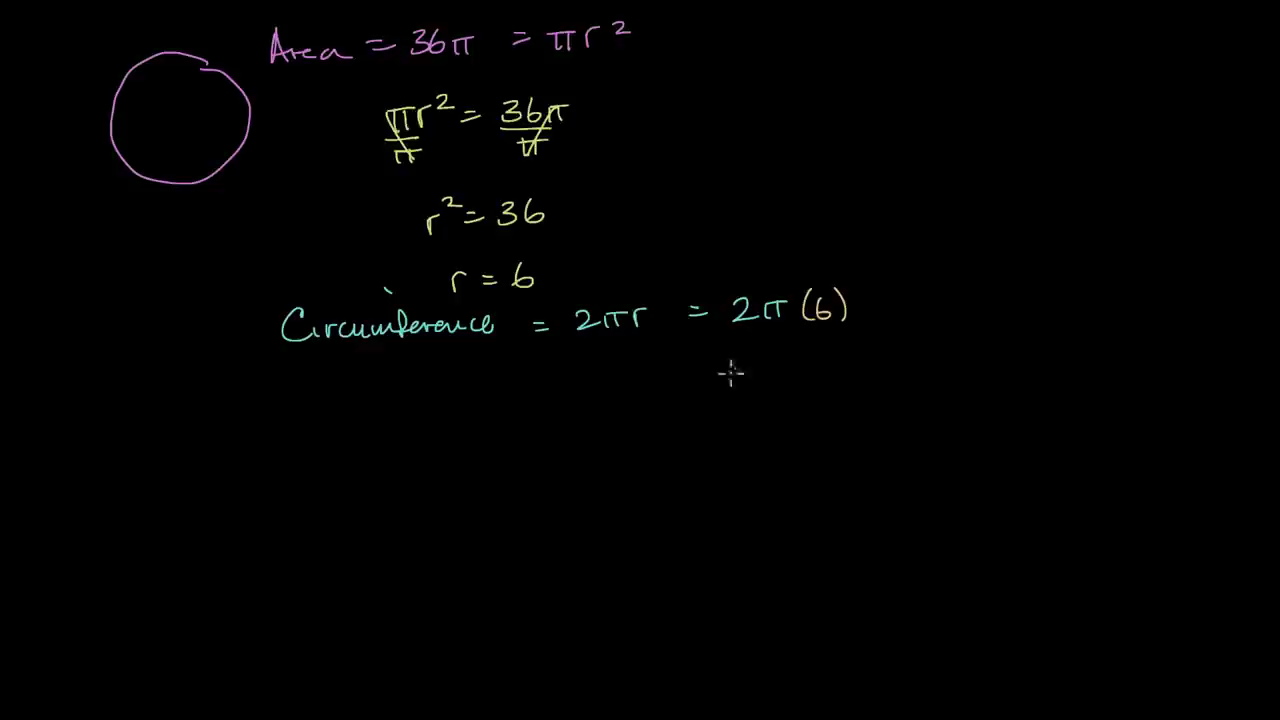 Area = 36π = πr²
πr²/π = 36π/π
r² = 36
r = 6
Circumference = 2πr = 2π(6)